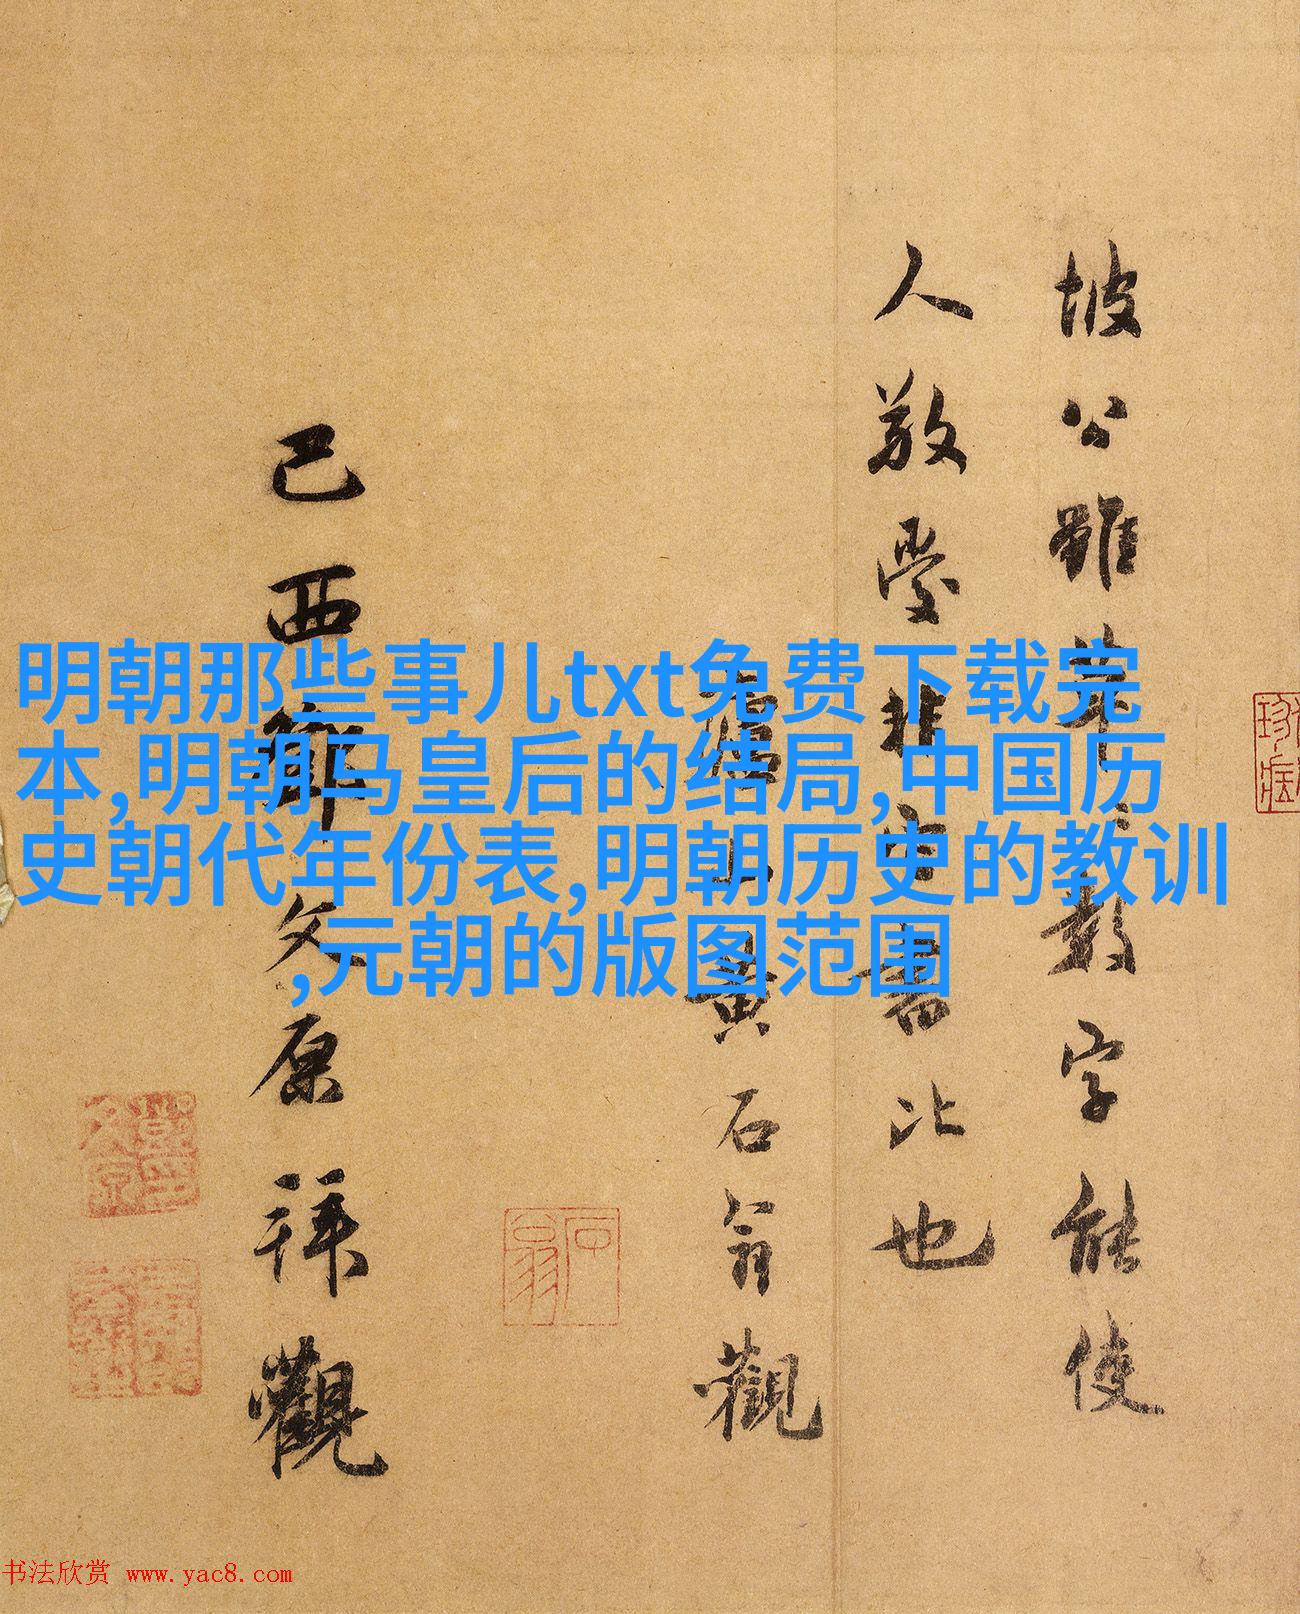 明朝那些事儿txt免费下载完
本,明朝马皇后的结局,中国历
史朝代年份表,明朝历史的教训
,元朝的版图范围
坡公雖草〻數字能使
人敬愛非它書比也
山黃石翁觀
己酉鄧文原拜觀
石翁
书法欣赏 www.yac8.com